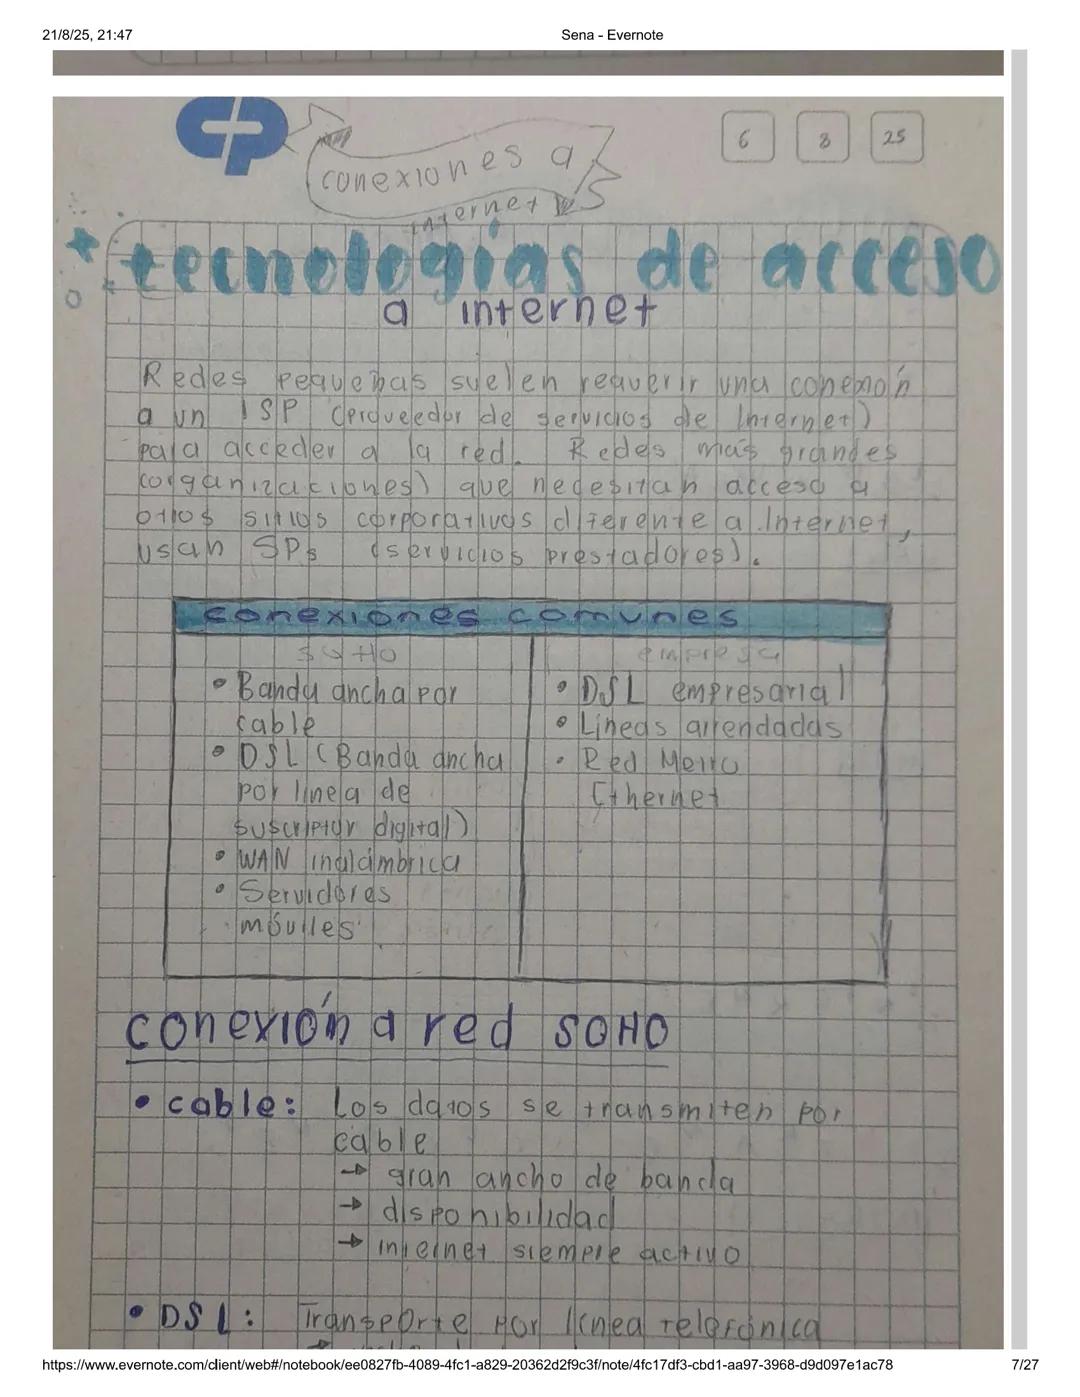 21/8/25, 21:47 Sena - Evernote
conexiones a
internet
6 8 25
tecnologías de acceso
a internet
Redes pequeñas suelen requerir una conexión
a un ISP (proveedor de servicios de Internet)
para acceder a la red. Redes más grandes
(organizaciones) que necesitan acceso a
otros sitios corporativos diferente a Internet,
usan SPs (servicios prestadores).
conexiones comunes
SOHO empresa
• Banda ancha por
cable
• DSL (Banda ancha
por línea de
suscriptor digital)
• WAN inalámbrica
• Servidores
móviles
• DSL empresarial
• Líneas arrendadas
• Red Metro
Ethernet
conexión a red SOHO
• cable: Los datos se transmiten por
cable
→ gran ancho de banda
→ disponibilidad
→ internet siempre activo
• DSL: Transporte por línea telefónica
https://www.evernote.com/client/web#/notebook/ee0827fb-4089-4fc1-a829-20362d2f9c3f/note/4fc17df3-cbd1-aa97-3968-d9d097e1ac78 7/27